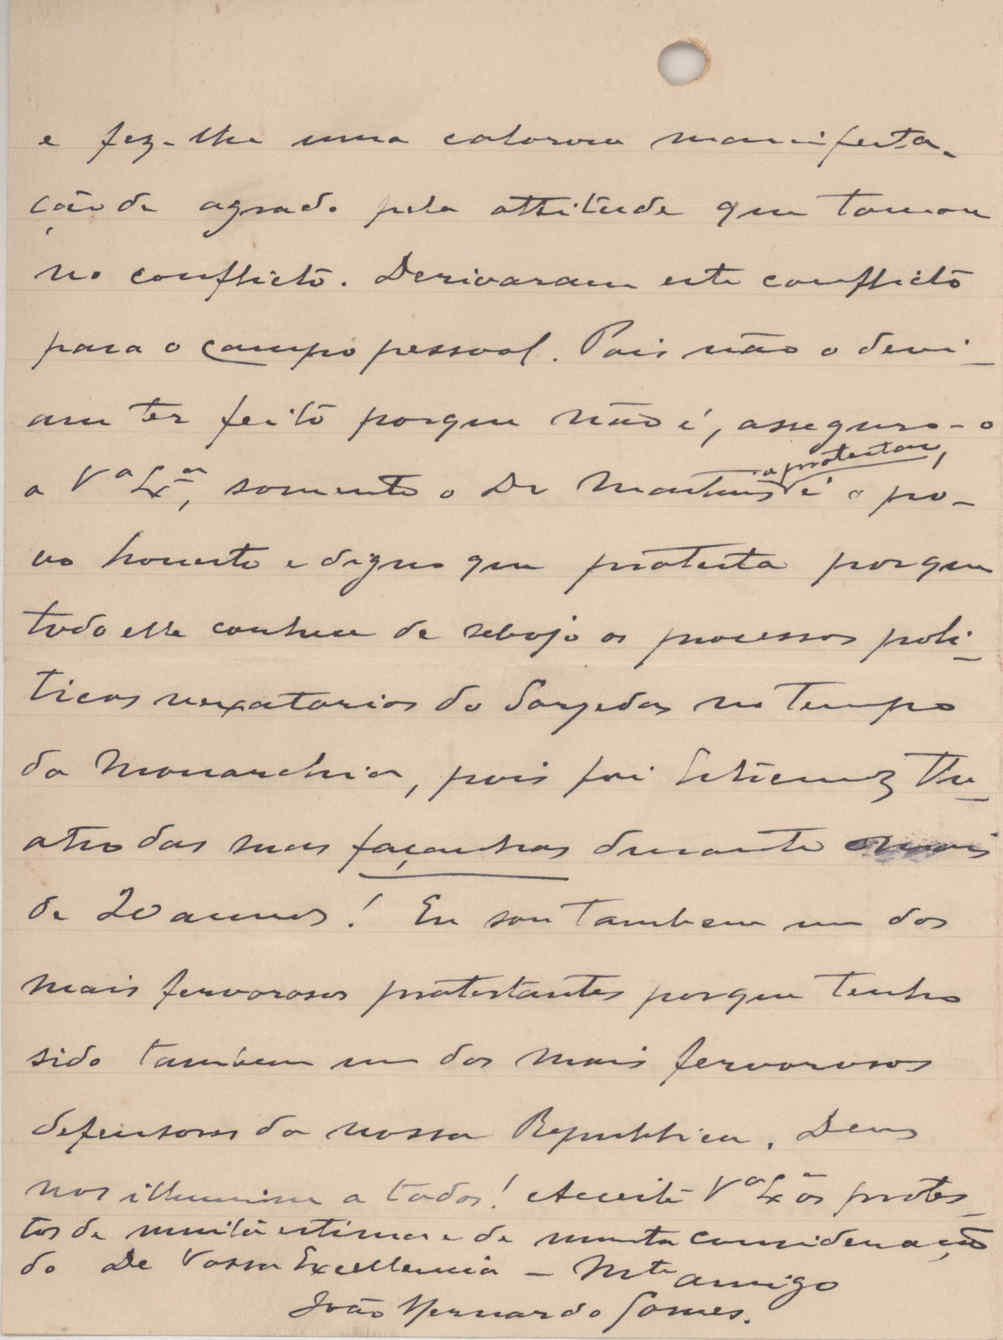 e fez-lhe uma calorosa manifesta-
ção de agrado pela attitude que tomou
no conflicto. Derivaram este conflicto
para o campo pessoal. Pois não o devi-
am ter feito porque não é, asseguro-o
a Vª Exª, somente o Dr Martins a protestar, é o po-
vo honesto e digno que protesta porque
todo elle conhece de sobejo os processos poli-
ticos vexatorios do Sarzedas no tempo
da Monarchia, pois foi Thea-
atro das suas façanhas durante mais
de 20 annos! Eu sou tambem um dos
mais fervorosos protestantes porque tenho
sido tambem um dos mais fervorosos
defensores da nossa Republica. Deus
nos illumine a todos! Acceite Vª Exª os protes-
tos de muita estima e de muita consideração
do De Vossa Excellencia - Mto amigo
João Bernardo Gomes.